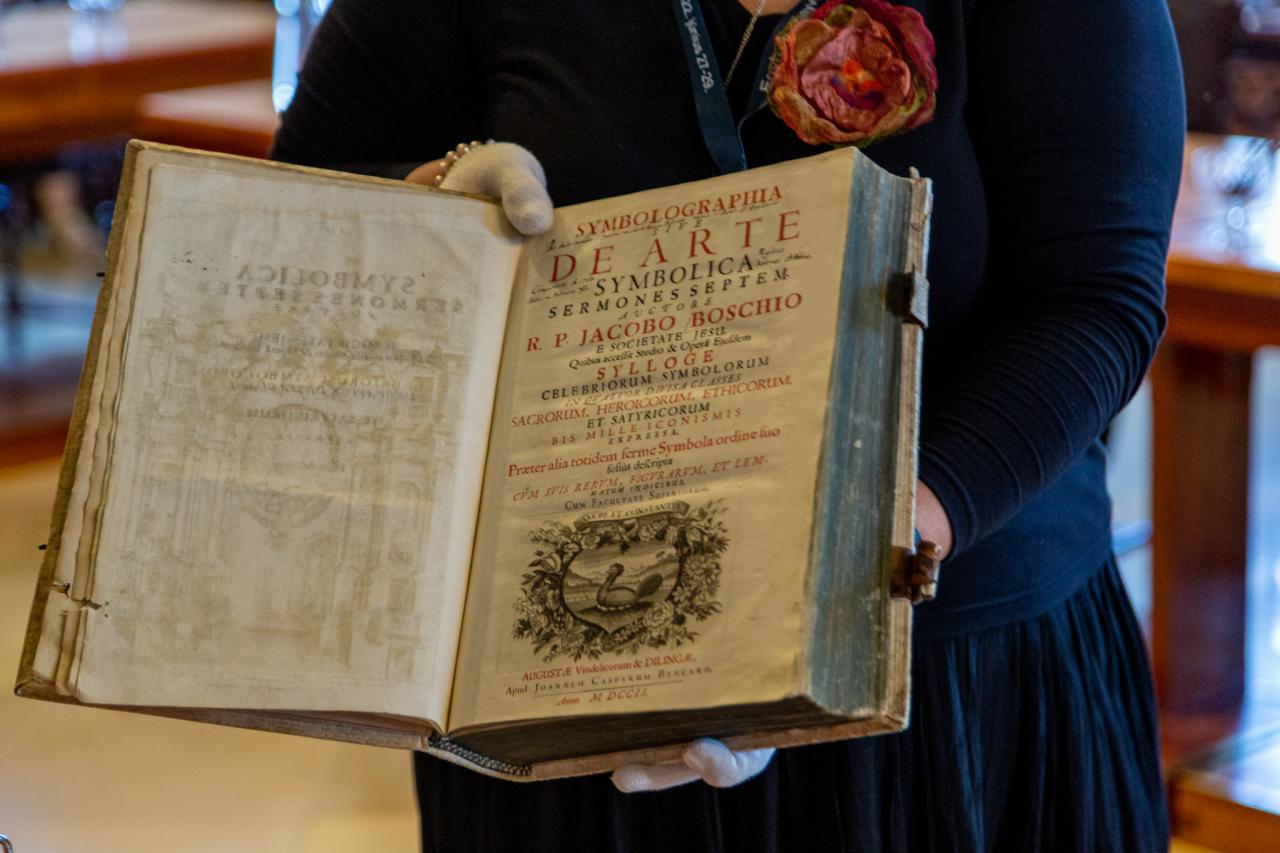 22. június 27-29.
SYMBOLOGRAPHIA
SIVE
DE ARTE
SYMBOLICA
SERMONES SEPTEM
AUCTORE
R. P. JACOBO BOSCHIO
E SOCIETATE JESU.
Quibus accessit Studio & Operâ Ejusdem
SYLLOGE
CELEBRIORUM SYMBOLORUM
IN QUATUOR DIVISA CLASSES
SACRORUM, HEROICORUM, ETHICORUM,
ET SATYRICORUM
BIS MILLE ICONISMIS
EXPRESSA.
Præter alia totidem ferme Symbola ordine suo
fusiùs descripta
CUM SVIS RERVM, FIGVRARVM, ET LEM-
MATUM INDICIBUS.
CUM FACULTATE SUPERIORUM.
AMORE ET CONSTANTIA
AUGUSTÆ Vindelicorum & DILINGÆ,
Apud JOANNEM CASPARUM BENCARD.
Anno M DCCII.